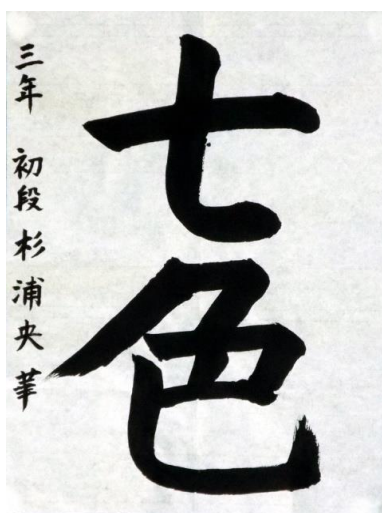 七色
三年 初段 杉浦央華